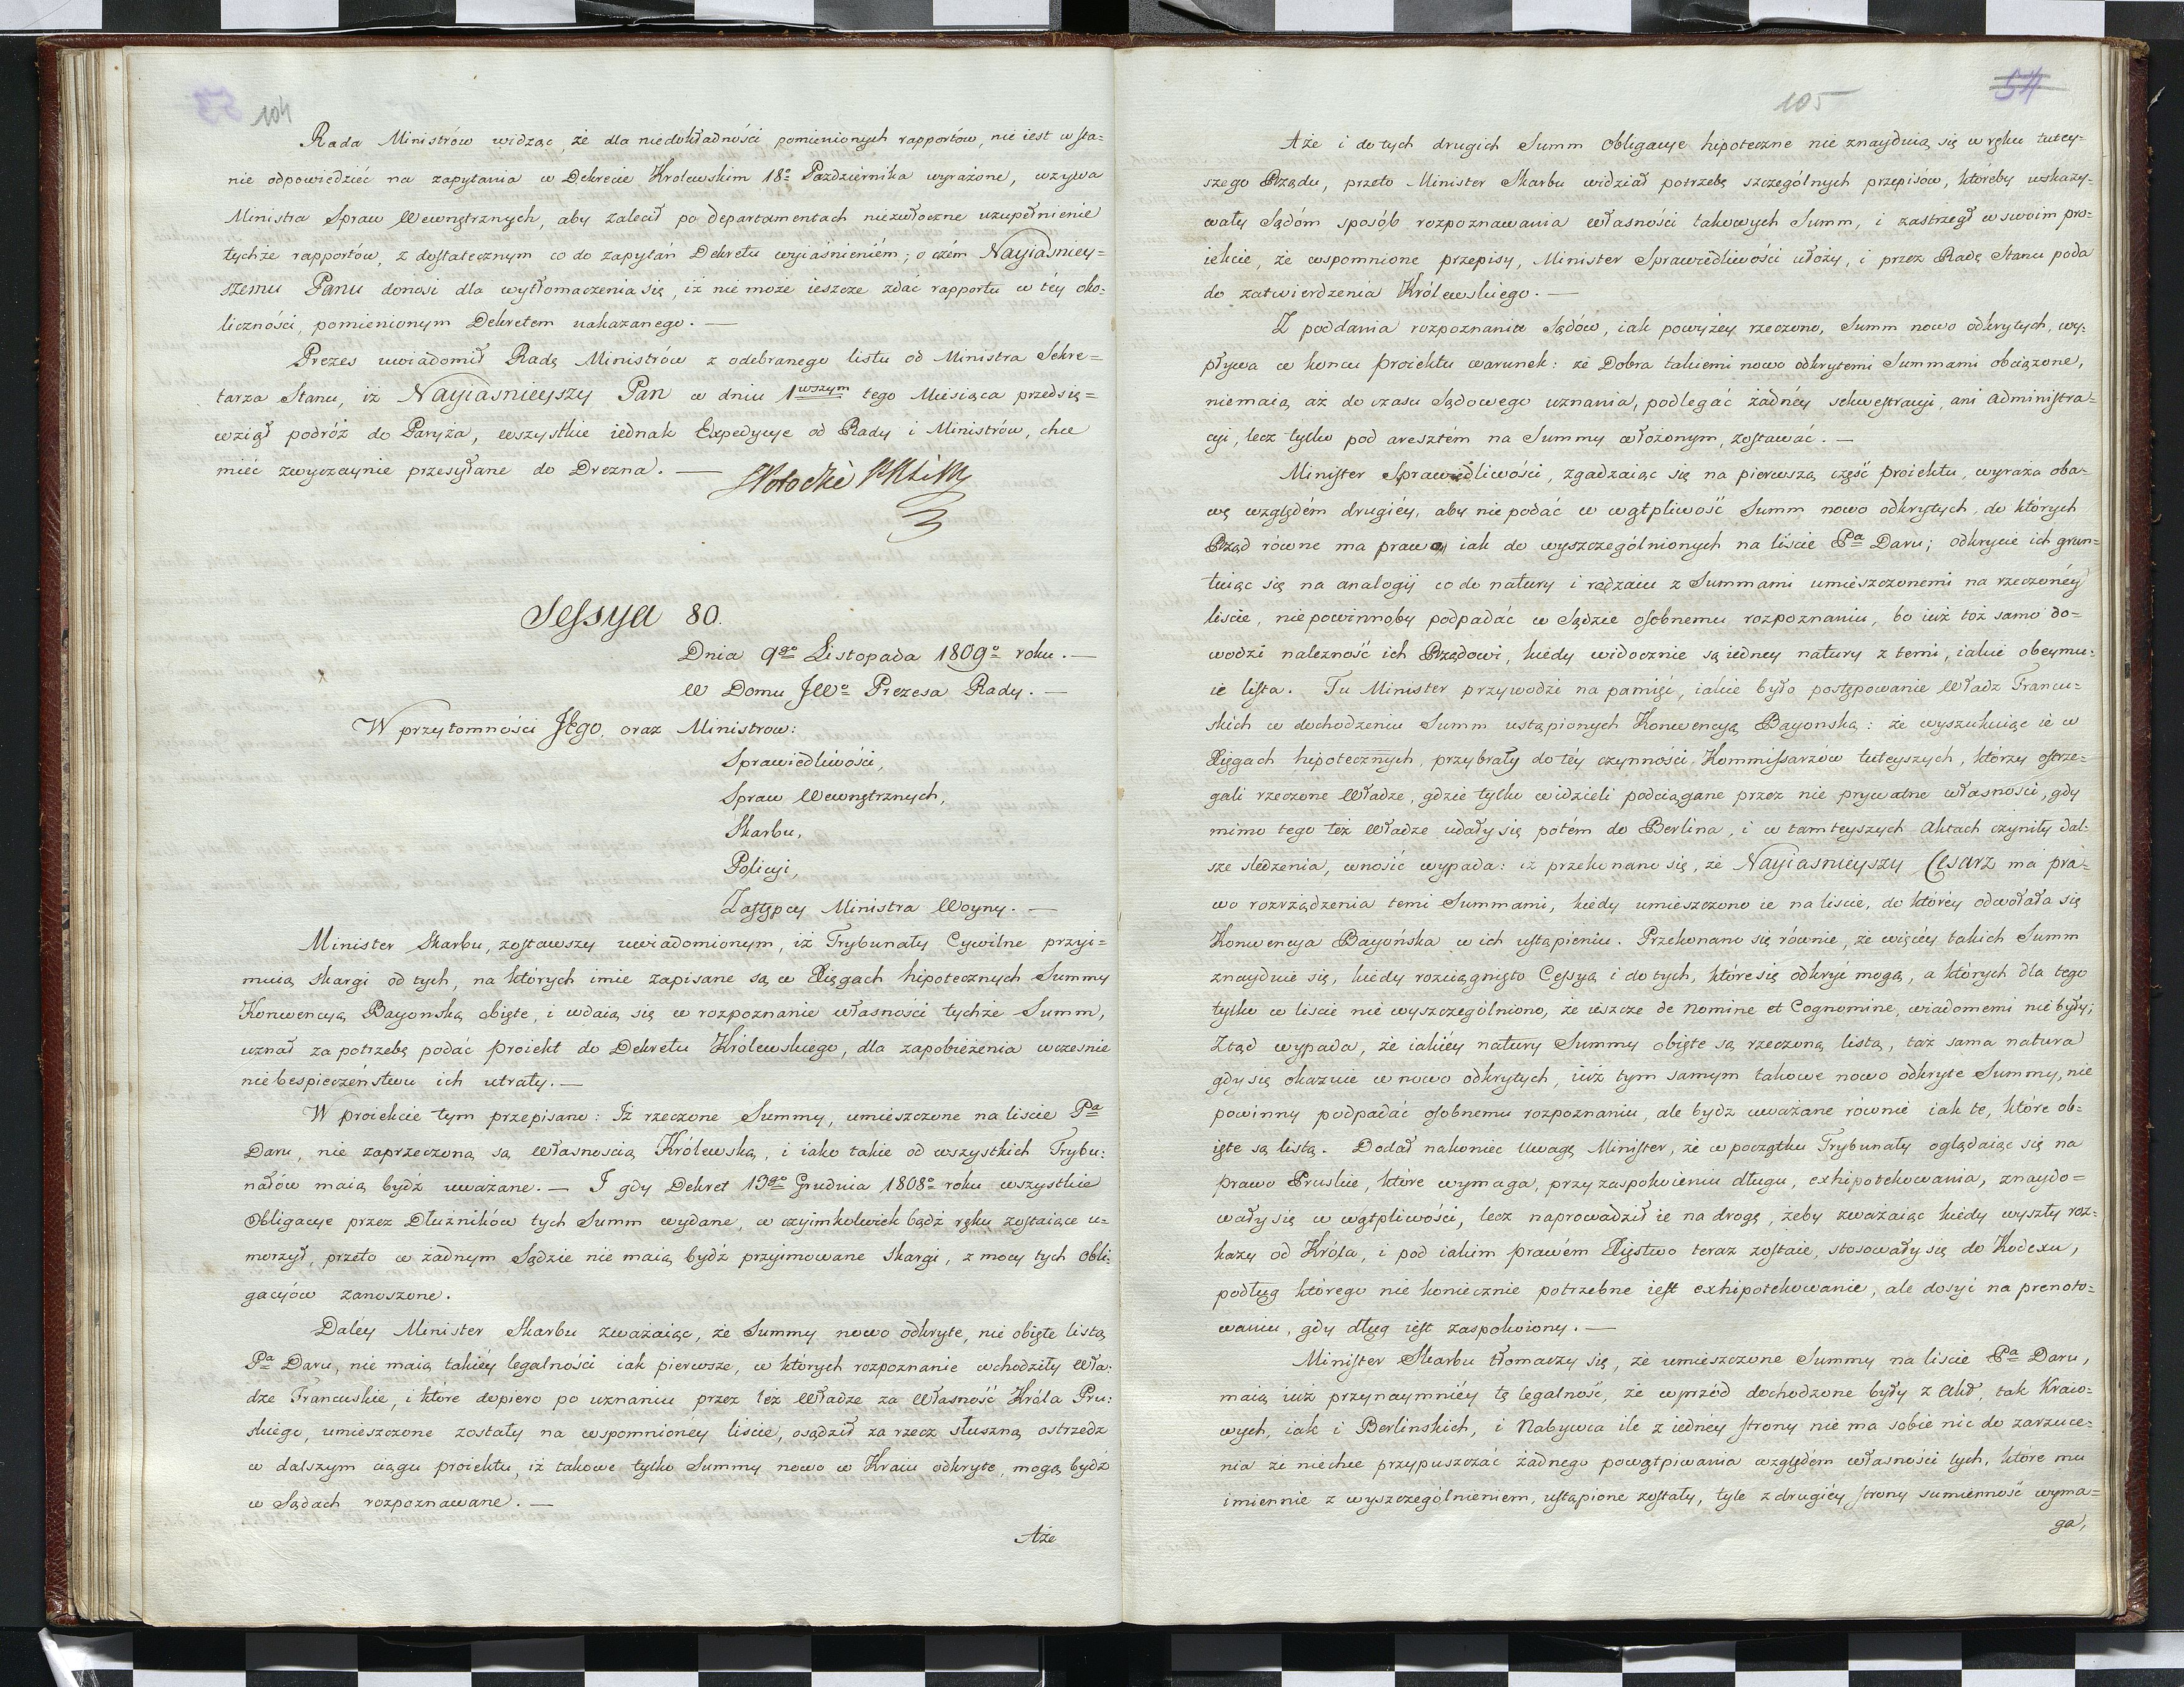 104
Rada Ministrów widząc, że dla niedokładności pomienionych rapportów, nie iest w sta=
nie odpowiedzieć na zapytania w Dekrecie Krolewskim 18º Pazdziernika wyrażone, wzywa
Ministra Spraw Wewnętrznych, aby zalecił po departamentach niezwłoczne uzupełnienie
tychże rapportów, z dostatecznym co do zapytań Dekretu wyiaśnieniém; o czém Nayiaśniey=
szemu Panu donosi dla wytłomaczenia się, iż nie może ieszcze zdać rapportu w téy oko=
liczności, pomienionym Dekretem nakazanego. —
Prezes uwiadomił Radę Ministrów z odebranego listu od Ministra Sekre=
tarza Stanu, iż Nayiasnieyszy Pan w dniu 1wszym tego Miesiąca przedsię=
wziął podróż do Paryża, wszystkie iednak Expedycye od Rady i Ministrów, chce
mieć zwyczaynie przesyłane do Drezna. —
Sessya 80.
Dnia 9go Listopada 1809º roku. —
W Domu JWº Prezesa Rady. —
W przytomności JEgo, oraz Ministrow:
Sprawiedliwości,
Spraw Wewnętrznych,
Skarbu,
Policyi,
Zastępcy Ministra Woyny. —
Minister Skarbu, zostawszy uwiadomionym, iż Trybunały Cywilne przyi=
muią skargi od tych, na których imie zapisane są w Xięgach hipotecznych Summy
Konwencyą Bayonską obięte, i wdaią się w rozpoznanie własności tychże Summ,
uznał za potrzebę podać proiekt do Dekretu Królewskiego, dla zapobieżenia wczesnie
niebespieczeństwu ich utraty. —
W proiekcie tym przepisano: Iż rzeczone Summy, umieszczone na liscie Pa
Daru, nie zaprzeczoną są Własnością Królewską, i iako takie od wszystkich Trybu=
nałów maią bydź uważane. — I gdy Dekret 19go Grudnia 1808º roku wszystkie
Obligacye przez Dłużników tych Summ wydane, w czyimkolwiek bądź ręku zostaiące u=
morzył, przeto w żadnym Sądzie nie maią bydź przyimowane skargi, z mocy tych obli=
gacyów zanoszone.
Daley Minister Skarbu zważaiąc, że Summy nowo odkryte, nie obięte listą
Pa Daru, nie maią takiéy legalności iak pierwsze, w których rozpoznanie wchodziły Wła=
dze Francuskie, i które dopiero po uznaniu przez też Władze za Własność Króla Pru=
skiego, umieszczone zostały na wspomnionéy liscie, osądził za rzecz słuszną ostrzedz
w dalszym ciągu proiektu, iż takowe tylko Summy nowo w Kraiu odkryte, mogą bydź
w Sądach rozpoznawane. —
Aże
105
54
Aże i do tych drugich Summ Obligacye hipoteczne nie znayduią się w ręku tutey=
szego Rządu, przeto Minister Skarbu widział potrzebę szczególnych przepisów, któreby wskazy=
wały Sądóm sposób rozpoznawania własności takowych Summ, i zastrzegł w swoim pro=
iekcie, że wspomnione przepisy, Minister Sprawiedliwości ułoży, i przez Radę Stanu poda
do zatwierdzenia Królewskiego. —
Z poddania rozpoznaniu Sądów, iak powyżey rzeczono, Summ nowo odkrytych, wy=
pływa w koncu proiektu warunek: że Dobra takiemi nowo odkrytemi Summami obciążone,
niemaią aż do czasu Sądowego uznania, podlegać żadnéy sekwestracyi, ani administra=
cyi, lecz tylko pod aresztém na Summy włożonym, zostawać. —
Minister Sprawiedliwości, zgadzaiąc się na pierwszą część proiektu, wyraża oba=
wę względém drugiéy, aby nie podać w wątpliwość Summ nowo odkrytych, do których
Rząd równe ma prawo, iak do wyszczególnionych na liscie Pa Daru; odkrycie ich grun=
tuiąc się na analogij co do natury i rodzaiu z Summami umieszczonemi na rzeczonéy
liscie, nie powinnoby podpadać w Sądzie osobnemu rozpoznaniu, bo iuż toż samo do=
wodzi należność ich Rządowi, kiedy widocznie są iedney natury z temi, iakie obeymu=
ie lista. Tu Minister przywodzi na pamięć, iakie było postępowanie Władz Francu=
skich w dochodzeniu Summ ustąpionych Konwencyą Bayonską: że wyszukuiąc ie w
Xięgach hipotecznych, przybrały do téy czynności Kommissarzów tuteyszych, którzy ostrze=
gali rzeczone Władze, gdzie tylko widzieli podciągane przez nie prywatne własności, gdy
mimo tego też Władze udały się potém do Berlina, i w tamteyszych Aktach czyniły dal=
sze śledzenia, wnosić wypada: iż przekonano się, że Nayiasnieyszy Cesarz ma pra=
wo rozrządzenia temi Summami, kiedy umieszczono ie na liscie, do któréy odwołała się
Konwencya Bayońska w ich ustąpieniu. Przekonano się równie, że więcéy takich Summ
znayduie się, kiedy rozciągnięto Cessyą i do tych, które się odkryć mogą, a których dla tego
tylko w liscie nie wyszczególniono, że ieszcze de Nomine et Cognomine, wiadomemi nie były;
Ztąd wypada, że iakiéy natury Summy obięte są rzeczoną listą, taż sama natura
gdy się okazuie w nowo odkrytych, iuż tym samym takowe nowo odkryte Summy, nie
powinny podpadać osobnemu rozpoznaniu, ale bydź uważane równie iak te, które ob=
ięte są listą. Dodał nakoniec uwagę Minister, że w początku Trybunały oglądaiąc się na
prawo Pruskie, które wymaga, przy zaspokoieniu długu, exhipotekowania, znaydo=
wały się w wątpliwości, lecz naprowadził ie na drogę, żeby zważaiąc kiedy wyszły roz=
kazy od Króla, i pod iakim prawém Xięstwo teraz zostaie, stosowały się do Kodexu,
podług którego nie koniecznie potrzebne iest exhipotekowanie, ale dosyć na prenoto=
waniu, gdy dług iest zaspokoiony. —
Minister Skarbu tłomaczy się, że umieszczone Summy na liscie Pa Daru,
maią iuż przynaymniéy tę legalność, że wprzód dochodzone były z Akt, tak Kraio=
wych, iak i Berlinskich, i Nabywca ile z iedney strony nie ma sobie nic do zarzuce=
nia że niechce przypuszczać żadnego powątpiwania względém własności tych, które mu
imiennie z wyszczególnieniem, ustąpione zostały, tyle z drugiéy strony sumienność wyma=
ga,